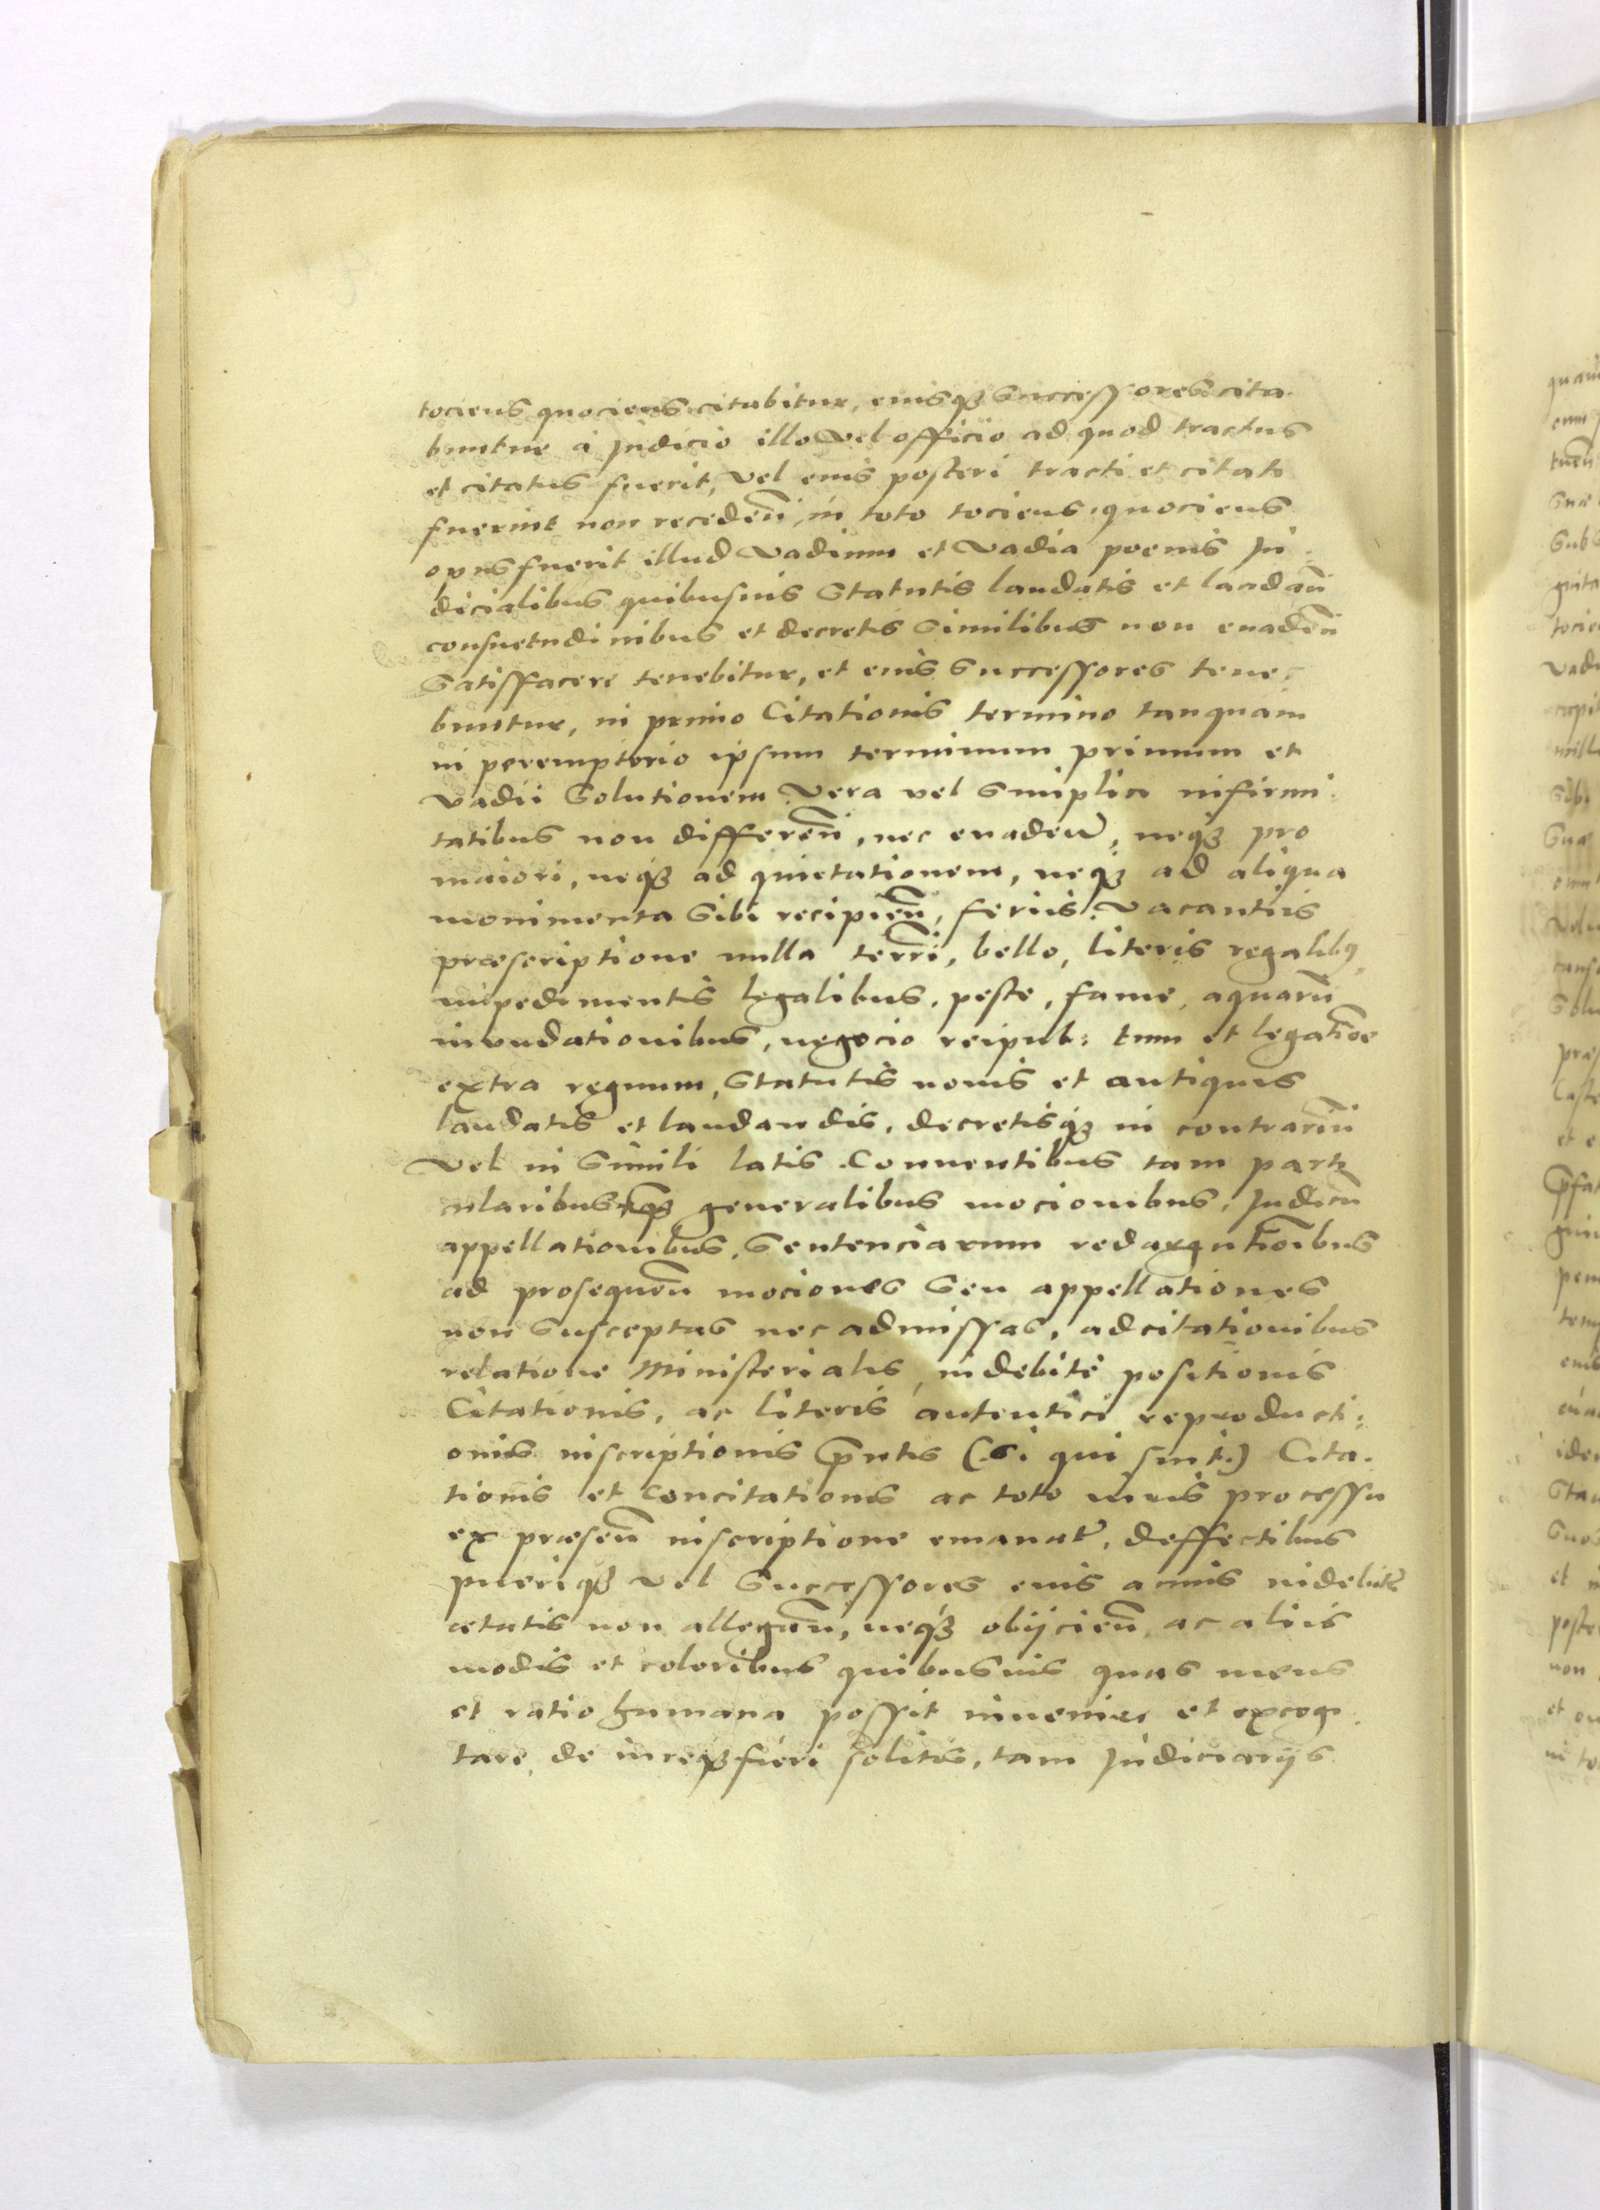 tociens quociens citabitur, eiusq3 Successores cita-
buntur à Judicio illo vel officio ad quod tractus
et citatus fuerit, vel eius posteri tracti et citati
fuerint non recedeñ, in toto tociens quociens
opus fuerit illud vadium et vadia poenis Ju-
dicialibus quibusuis Statutis laudatis et laudañ
consuetudinibus et decretis similibus non euadeñ
Satisfacere tenebitur, et eius Successores tene-
buntur, in primo Citationis termino tanquam
in peremptorio ipsum terminum primum et
vadii Solutionem vera vel simplici infirmi-
tatibus non differeñ, nec euadeñ, neq3 pro
maiori, neq3 ad quietationem, neq3 ad aliqua
monimenta Sibi recipieñ, feriis, vacantiis
præscriptione nulla terri, bello, literis regalib9
impedimentis legalibus, peste, fame, aquarũ
inundationibus, negocio reipub: tum et legatioe
extra regnum, Statutis nouis et antiquis
laudatis et laudandis, decretisq3 in contrariũ
vel in Simili latis Conuentibus tam parti
cularibus q3 generalibus mocionibus, Judicũ
appellationibus, Sentenciarum redargutioibus
ad prosequeñ mociones Seu appellationes
non Susceptas nec admissas, adcitationibus
relatione Ministerialis, indebite positionis
Citationis, ac literis autentici reproducti-
onis inscriptionis p̃ntis (.Si qui sint.) Cita-
tionis et Concitationis ac toto iuris processu
ex præseñ inscriptione emanat, deffectibus
pueriq3 vel Successores eius annis indebite
ætatis non allegañ, neq3 obijcieñ, ac aliis
modis et coloribus quibusuis quas mens
et ratio humana possit inuenire et excogi
tare, de iureq3 fieri solitis, tam Judiciarijs